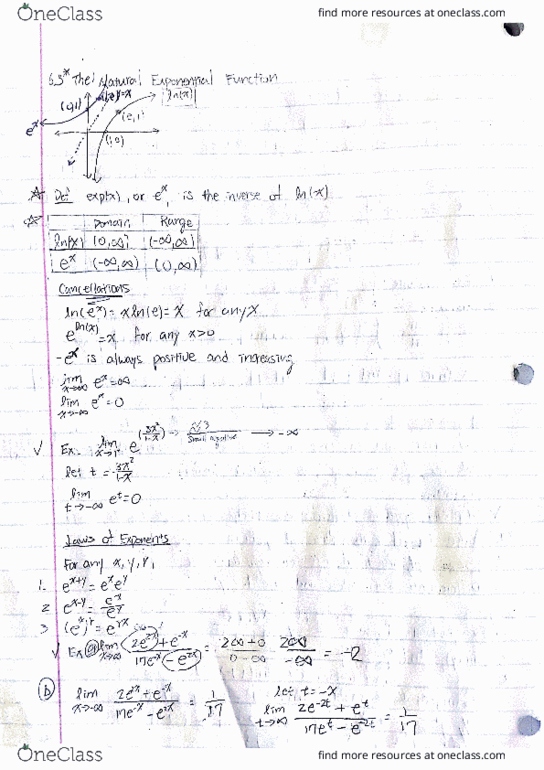 OneClass
find more resources at oneclass.com
6.3* The Natural Exponential Function
ln(x)
e^x
(e,1)
(1,0)
Def exp(x), or e^x, is the inverse of ln(x)
Domain Range
ln(x) (0,∞) (-∞,∞)
e^x (-∞,∞) (0,∞)
Cancellations
ln(e^x)= x ln(e)= x for any x
e^ln(x) = x for any x>0
- e^x is always positive and increasing
lim x→∞ e^x = ∞
lim x→-∞ e^x = 0
√ Ex. lim x→1+ e^(3x²/1-x) → ≈3 / small negative → -∞
let t = 3x²/1-x
lim t→-∞ e^t = 0
Laws of Exponents
For any x, y, r,
1. e^x+y = e^x e^y
2 e^x-y = e^x/e^y
3 (e^x)^r = e^rx
√ Ex (a) lim x→∞ 2e^2x + e^-x / 17e^-x - e^2x = 2∞+0 / 0-∞ 2∞ / -∞ = -2
(b) lim x→-∞ 2e^2x + e^-x / 17e^-x - e^2x = 1/17
let t = -x
lim t→∞ 2e^-2t + e^t / 17e^t - e^-2t = 1/17
OneClass
find more resources at oneclass.com